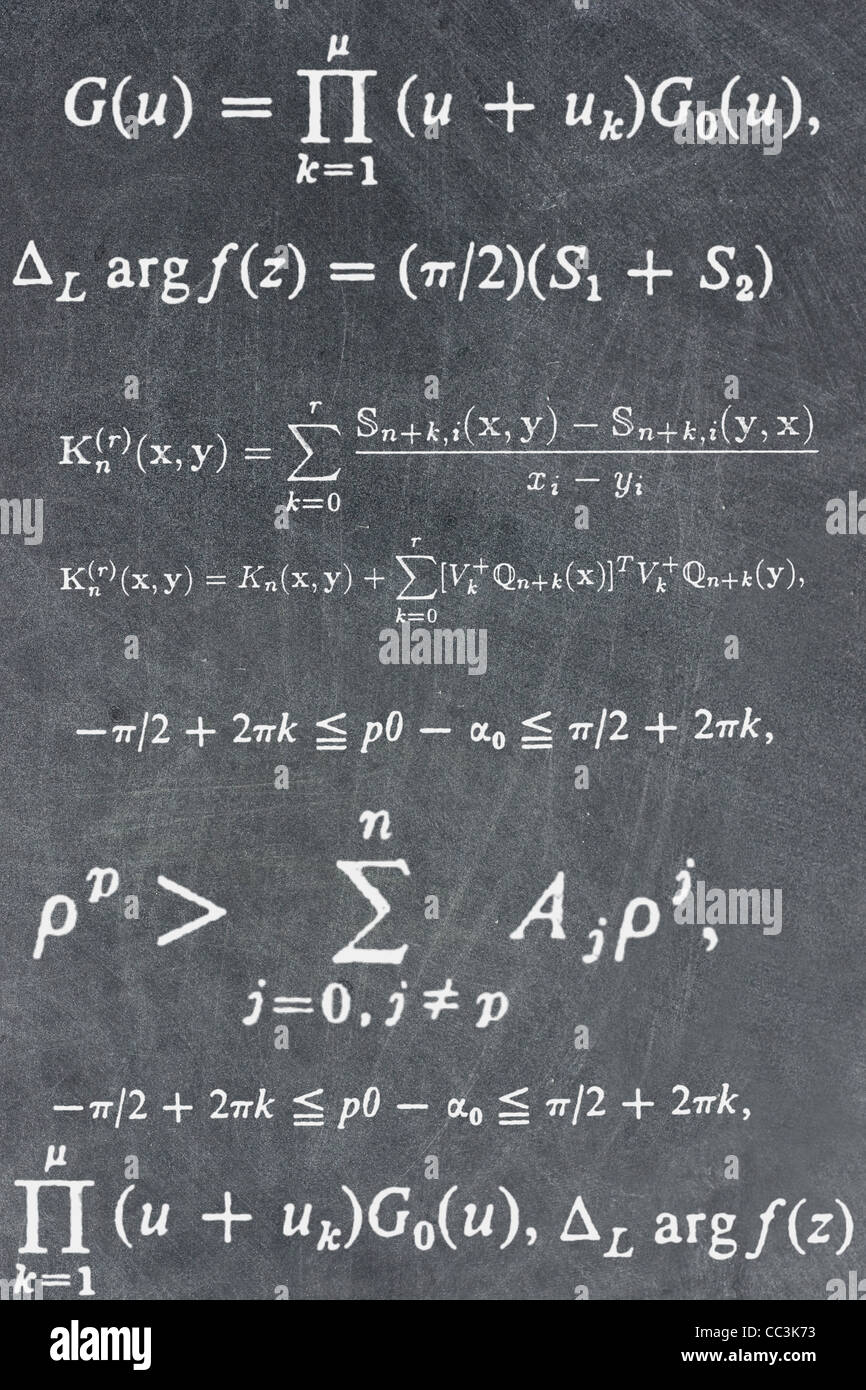 G(u) = ∏_{k=1}^{μ} (u + u_k)G_0(u),
Δ_L arg f(z) = (π/2)(S_1 + S_2)
K_n^{(r)}(x, y) = ∑_{k=0}^{r} \frac{𝕊_{n+k,i}(x, y) − 𝕊_{n+k,i}(y, x)}{x_i − y_i}
K_n^{(r)}(x, y) = K_n(x, y) + ∑_{k=0}^{r} [V_k^+ ℚ_{n+k}(x)]^T V_k^+ ℚ_{n+k}(y),
−π/2 + 2πk ≦ p0 − α_0 ≦ π/2 + 2πk,
ρ^p > ∑_{j=0, j ≠ p}^{n} A_j ρ^j,
−π/2 + 2πk ≦ p0 − α_0 ≦ π/2 + 2πk,
∏_{k=1}^{μ} (u + u_k)G_0(u), Δ_L arg f(z)
alamy
Image ID: CC3K73
www.alamy.com